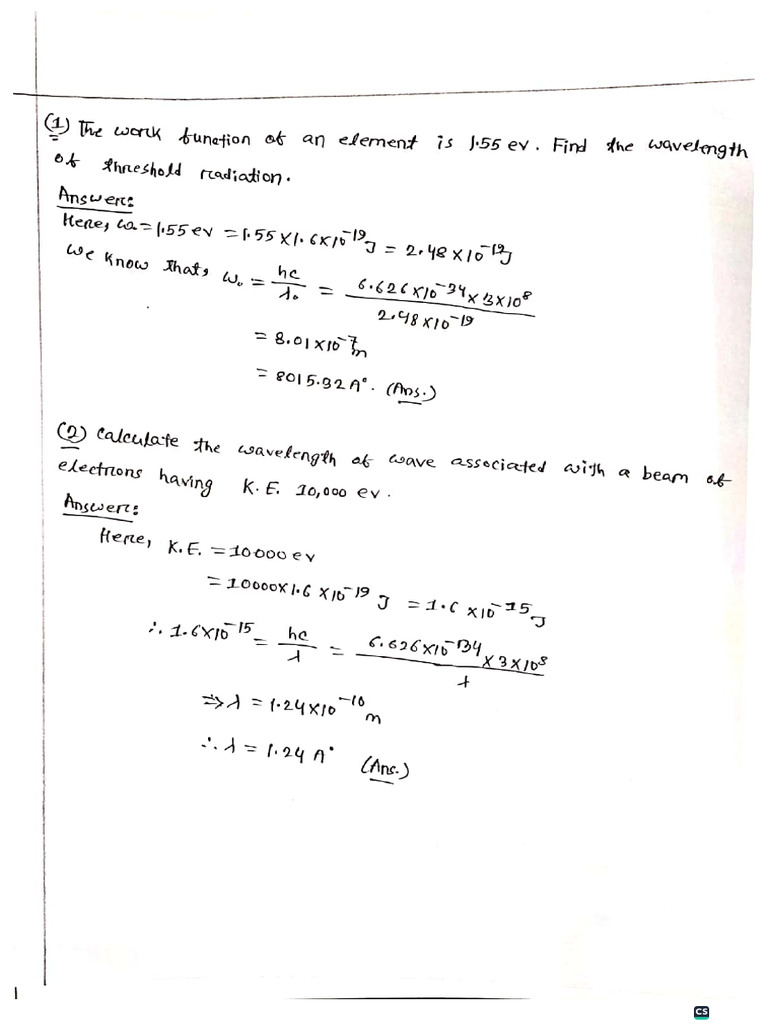 (1) The work function of an element is 1.55 ev. Find the wavelength
of threshold radiation.
Answer:
Here, ω₀ = 1.55 ev = 1.55 × 1.6 × 10⁻¹⁹ J = 2.48 × 10⁻¹⁹ J
We know that, ω₀ = hc / λ₀ = 6.626 × 10⁻³⁴ × 3 × 10⁸ / 2.48 × 10⁻¹⁹
= 8.01 × 10⁻⁷ m
= 8015.32 A°. (Ans.)
(2) Calculate the wavelength of wave associated with a beam of
electrons having K.E. 10,000 ev.
Answer:
Here, K.E. = 10000 ev
= 10000 × 1.6 × 10⁻¹⁹ J = 1.6 × 10⁻¹⁵ J
∴ 1.6 × 10⁻¹⁵ = hc / λ = 6.626 × 10⁻³⁴ × 3 × 10⁸ / λ
⇒ λ = 1.24 × 10⁻¹⁰ m
∴ λ = 1.24 A° (Ans.)
CS